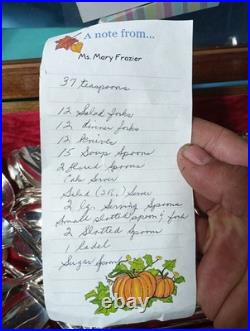 A note from...
Ms. Mary Frazier
37 teaspoons
12 Salad forks
12 dinner forks
12 Knives
15 Soup Spoons
2 Pierced Spoons
Cake Server
Salad (2 pc) Server
2 lg. Serving Spoons
Small slotted spoon & fork
2 Slotted Spoons
1 Ladel
Sugar Spoon